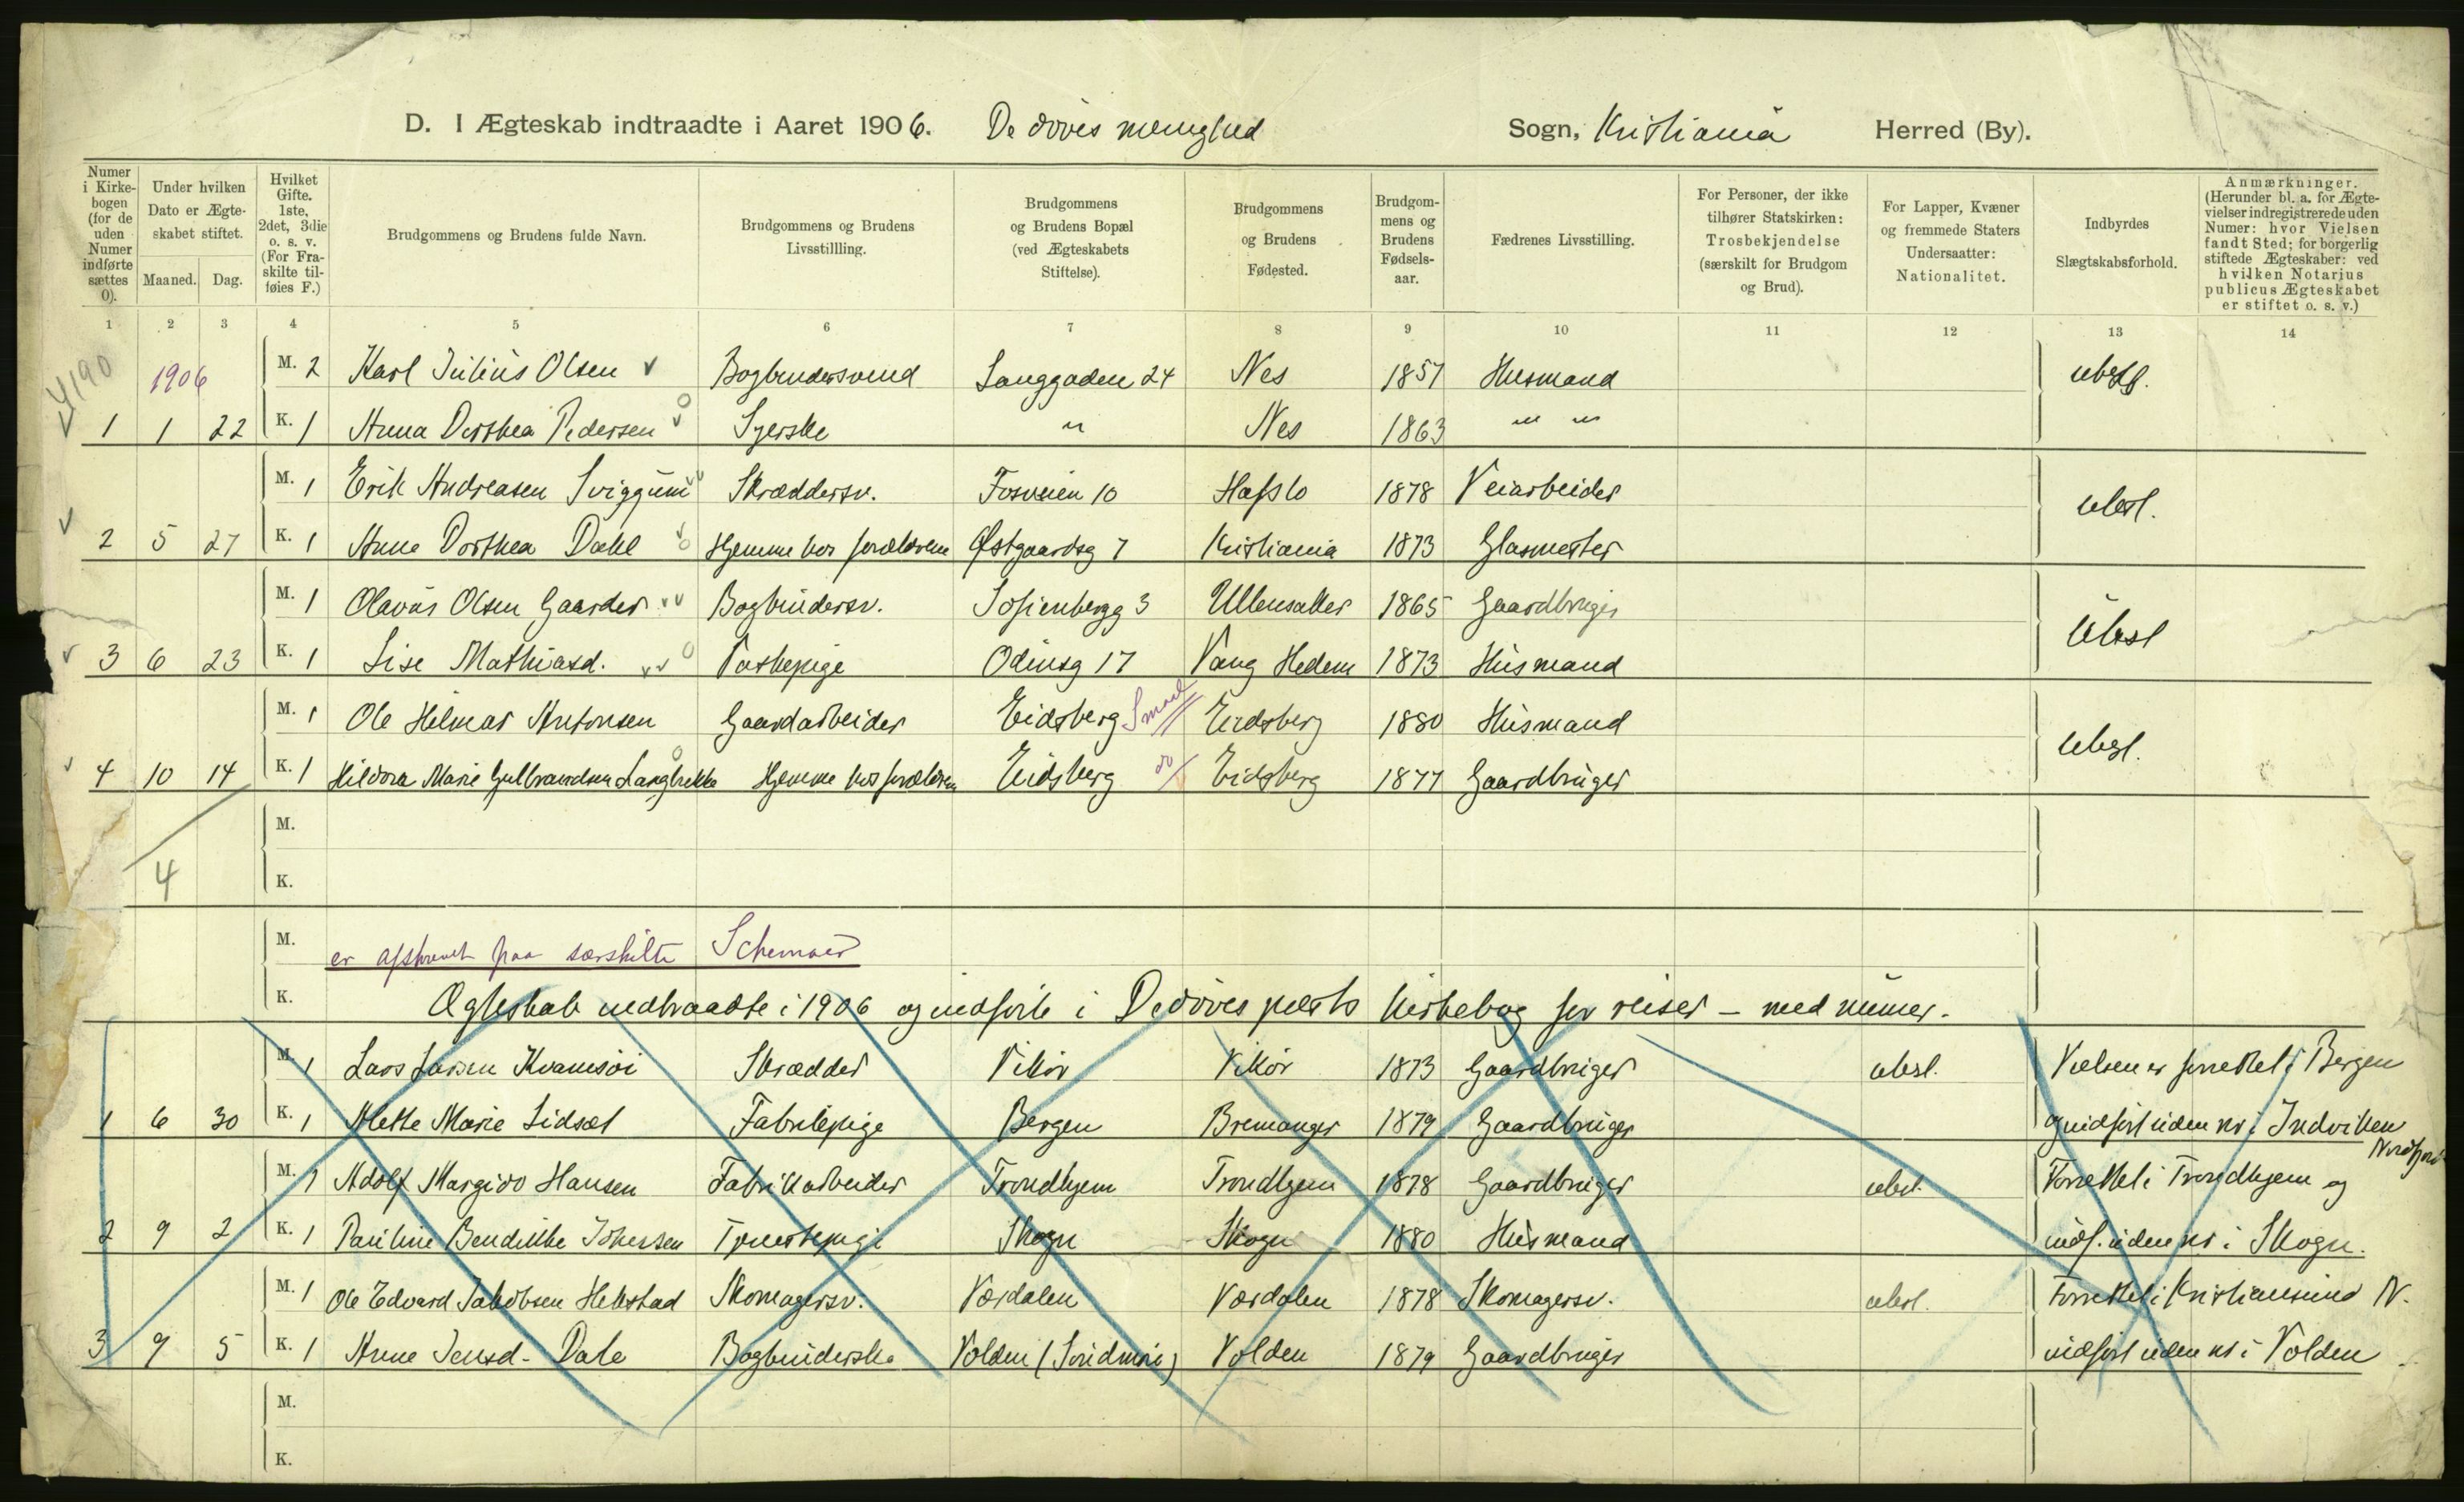 D. I Ægteskab indtraadte i Aaret 1906. De döves menighed Sogn, Kristiania Herred (By).
Numer i Kirke-bogen (for de uden Numer indførte sættes 0).
Under hvilken Dato er Ægte-skabet stiftet.
Maaned. Dag.
Hvilket Gifte. 1ste, 2det, 3die o. s. v. (For Fra-skilte til-føies F.)
Brudgommens og Brudens fulde Navn.
Brudgommens og Brudens Livsstillling.
Brudgommens og Brudens Bopæl (ved Ægteskabets Stiftelse).
Brudgommens og Brudens Fødested.
Brudgom-mens og Brudens Fødsels-aar.
Fædrenes Livsstilling.
For Personer, der ikke tilhører Statskirken: Trosbekjendelse (særskilt for Brudgom og Brud).
For Lapper, Kvæner og fremmede Staters Undersaatter: Nationalitet.
Indbyrdes Slægtskabsforhold.
Anmærkninger. (Herunder bl. a. for Ægte-vielser indregistrerede uden Numer: hvor Vielsen fandt Sted; for borgerlig stiftede Ægteskaber: ved hvilken Notarius publicus Ægteskabet er stiftet o. s. v.)
1 2 3 4 5 6 7 8 9 10 11 12 13 14
4190
1906 M. 2 Karl Julius Olsen Bogbindersvend Langgaden 24 Nes 1857 Husmand ubesl.
1 1 22 K. 1 Anna Dorthea Pedersen Syerske " Nes 1863 " "
M. 1 Erik Andreasen Sviggum Skræddersv. Fosveien 10 Hafslo 1878 Veiarbeider ubesl.
2 5 27 K. 1 Anne Dorthea Dahl Hjemme hos forældrene Østgaardsg 7 Kristiania 1873 Glasmester
M. 1 Olavus Olsen Gaarder Bogbindersv. Sofienbergg 3 Ullensaker 1865 Gaardbruger Ubesl
3 6 23 K. 1 Lise Mathiasd. Vaskepige Odinsg 17 Vang Hedem 1873 Husmand
M. 1 Ole Helmar Antonsen Gaardarbeider Eidsberg Smaal Eidsberg 1880 Husmand ubesl.
4 10 14 K. 1 Hildora Marie Gulbrandsen Langbrekke Hjemme hos forældren Eidsberg do Eidsberg 1877 Gaardbruger
M.
4 K.
M. er afskrevet paa særskilte Schemaer
K. Ægteskab indtraadte i 1906 og indförte i De döves prests kirkebog for reiser – med numer.
M. 1 Lars Larsen Kvamsöi Skrædder Vikör Vikör 1873 Gaardbruger ubesl. Vielsen er forrettet i Bergen
1 6 30 K. 1 Mette Marie Lidsæt Fabrikpige Bergen Bremanger 1879 Gaardbruger og indfört uden nr i Indviken
Nordfjord
M. 1 Adolf Margido Hansen Fabrikarbeider Trondhjem Trondhjem 1878 Gaardbruger ubesl. Forrettet i Trondhjem og
2 9 2 K. 1 Pauline Bendikke Johnsen Tjenestepige Skogn Skogn 1880 Husmand indf. uden nr i Skogn.
M. 1 Ole Edvard Jakobsen Helstad Skomagersv. Værdalen Værdalen 1878 Skomagersv. ubesl. Forrettet i Kristiansund N.
3 9 5 K. 1 Anne Jensd. Dale Bogbinderske Volden (Söndmöre) Volden 1879 Gaardbruger indfört uden nr i Volden
M.
K.